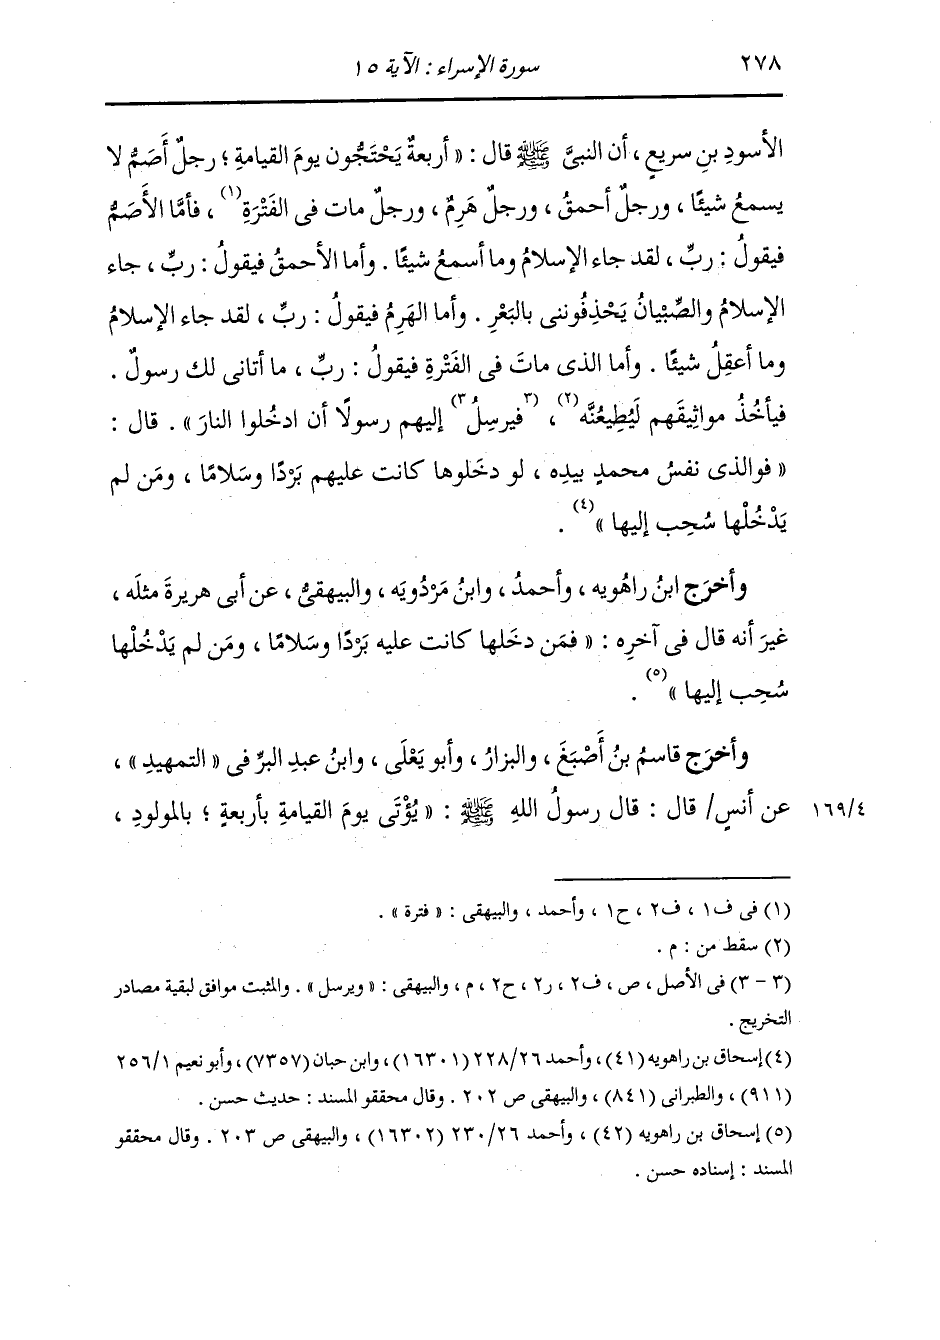 ٢٧٨
سورة الإسراء : الآية ١٥
الأسودِ بنِ سريعٍ ، أن النبىَّ ﷺ قال : « أربعةٌ يَحْتَجُّون يومَ القيامةِ ؛ رجلٌ أَصَمُّ لا
يسمعُ شيئًا ، ورجلٌ أحمقُ ، ورجلٌ هَرِمٌ ، ورجلٌ مات فى الفَتْرَةِ(١) ، فأمَّا الأَصَمُّ
فيقولُ : ربِّ ، لقد جاء الإسلامُ وما أسمعُ شيئًا . وأما الأحمقُ فيقولُ : ربِّ ، جاء
الإسلامُ والصِّبْيانُ يَحْذِفُوننى بالبَعْرِ . وأما الهَرِمُ فيقولُ : ربِّ ، لقد جاء الإسلامُ
وما أعقِلُ شيئًا . وأما الذى ماتَ فى الفَتْرةِ فيقولُ : ربِّ ، ما أتانى لك رسولٌ .
فيأخُذُ مواثيقَهم لَيُطِيعُنَّه(٢) ، (٣فيرسِلُ٣) إليهم رسولًا أن ادخُلوا النارَ » . قال :
« فوالذى نفسُ محمدٍ بيدِه ، لو دخَلوها كانت عليهم بَرْدًا وسَلامًا ، ومَن لم
يَدْخُلْها سُحِب إليها »(٤) .
وأخرَج ابنُ راهُويه ، وأحمدُ ، وابنُ مَرْدُويَه ، والبيهقىُّ ، عن أبى هريرةَ مثلَه ،
غيرَ أنه قال فى آخرِه : « فمَن دخَلها كانت عليه بَرْدًا وسَلامًا ، ومَن لم يَدْخُلْها
سُحِب إليها »(٥) .
وأخرَج قاسمُ بنُ أَصْبَغَ ، والبزارُ ، وأبو يَعْلَى ، وابنُ عبدِ البرِّ فى « التمهيدِ » ،
١٦٩/٤ عن أنسٍ/ قال : قال رسولُ اللهِ ﷺ : « يُؤْتَى يومَ القيامةِ بأربعةٍ ؛ بالمولودِ ،
(١) فى ف١ ، ف٢ ، ح١ ، وأحمد ، والبيهقى : « فترة » .
(٢) سقط من : م .
(٣ - ٣) فى الأصل ، ص ، ف٢ ، ر٢ ، ح٢ ، م ، والبيهقى : « ويرسل » . والمثبت موافق لبقية مصادر
التخريج .
(٤) إسحاق بن راهويه (٤١) ، وأحمد ٢٢٨/٢٦ (١٦٣٠١) ، وابن حبان (٧٣٥٧) ، وأبو نعيم ٢٥٦/١
(٩١١) ، والطبرانى (٨٤١) ، والبيهقى ص ٢٠٢ . وقال محققو المسند : حديث حسن .
(٥) إسحاق بن راهويه (٤٢) ، وأحمد ٢٣٠/٢٦ (١٦٣٠٢) ، والبيهقى ص ٢٠٣ . وقال محققو
المسند : إسناده حسن .